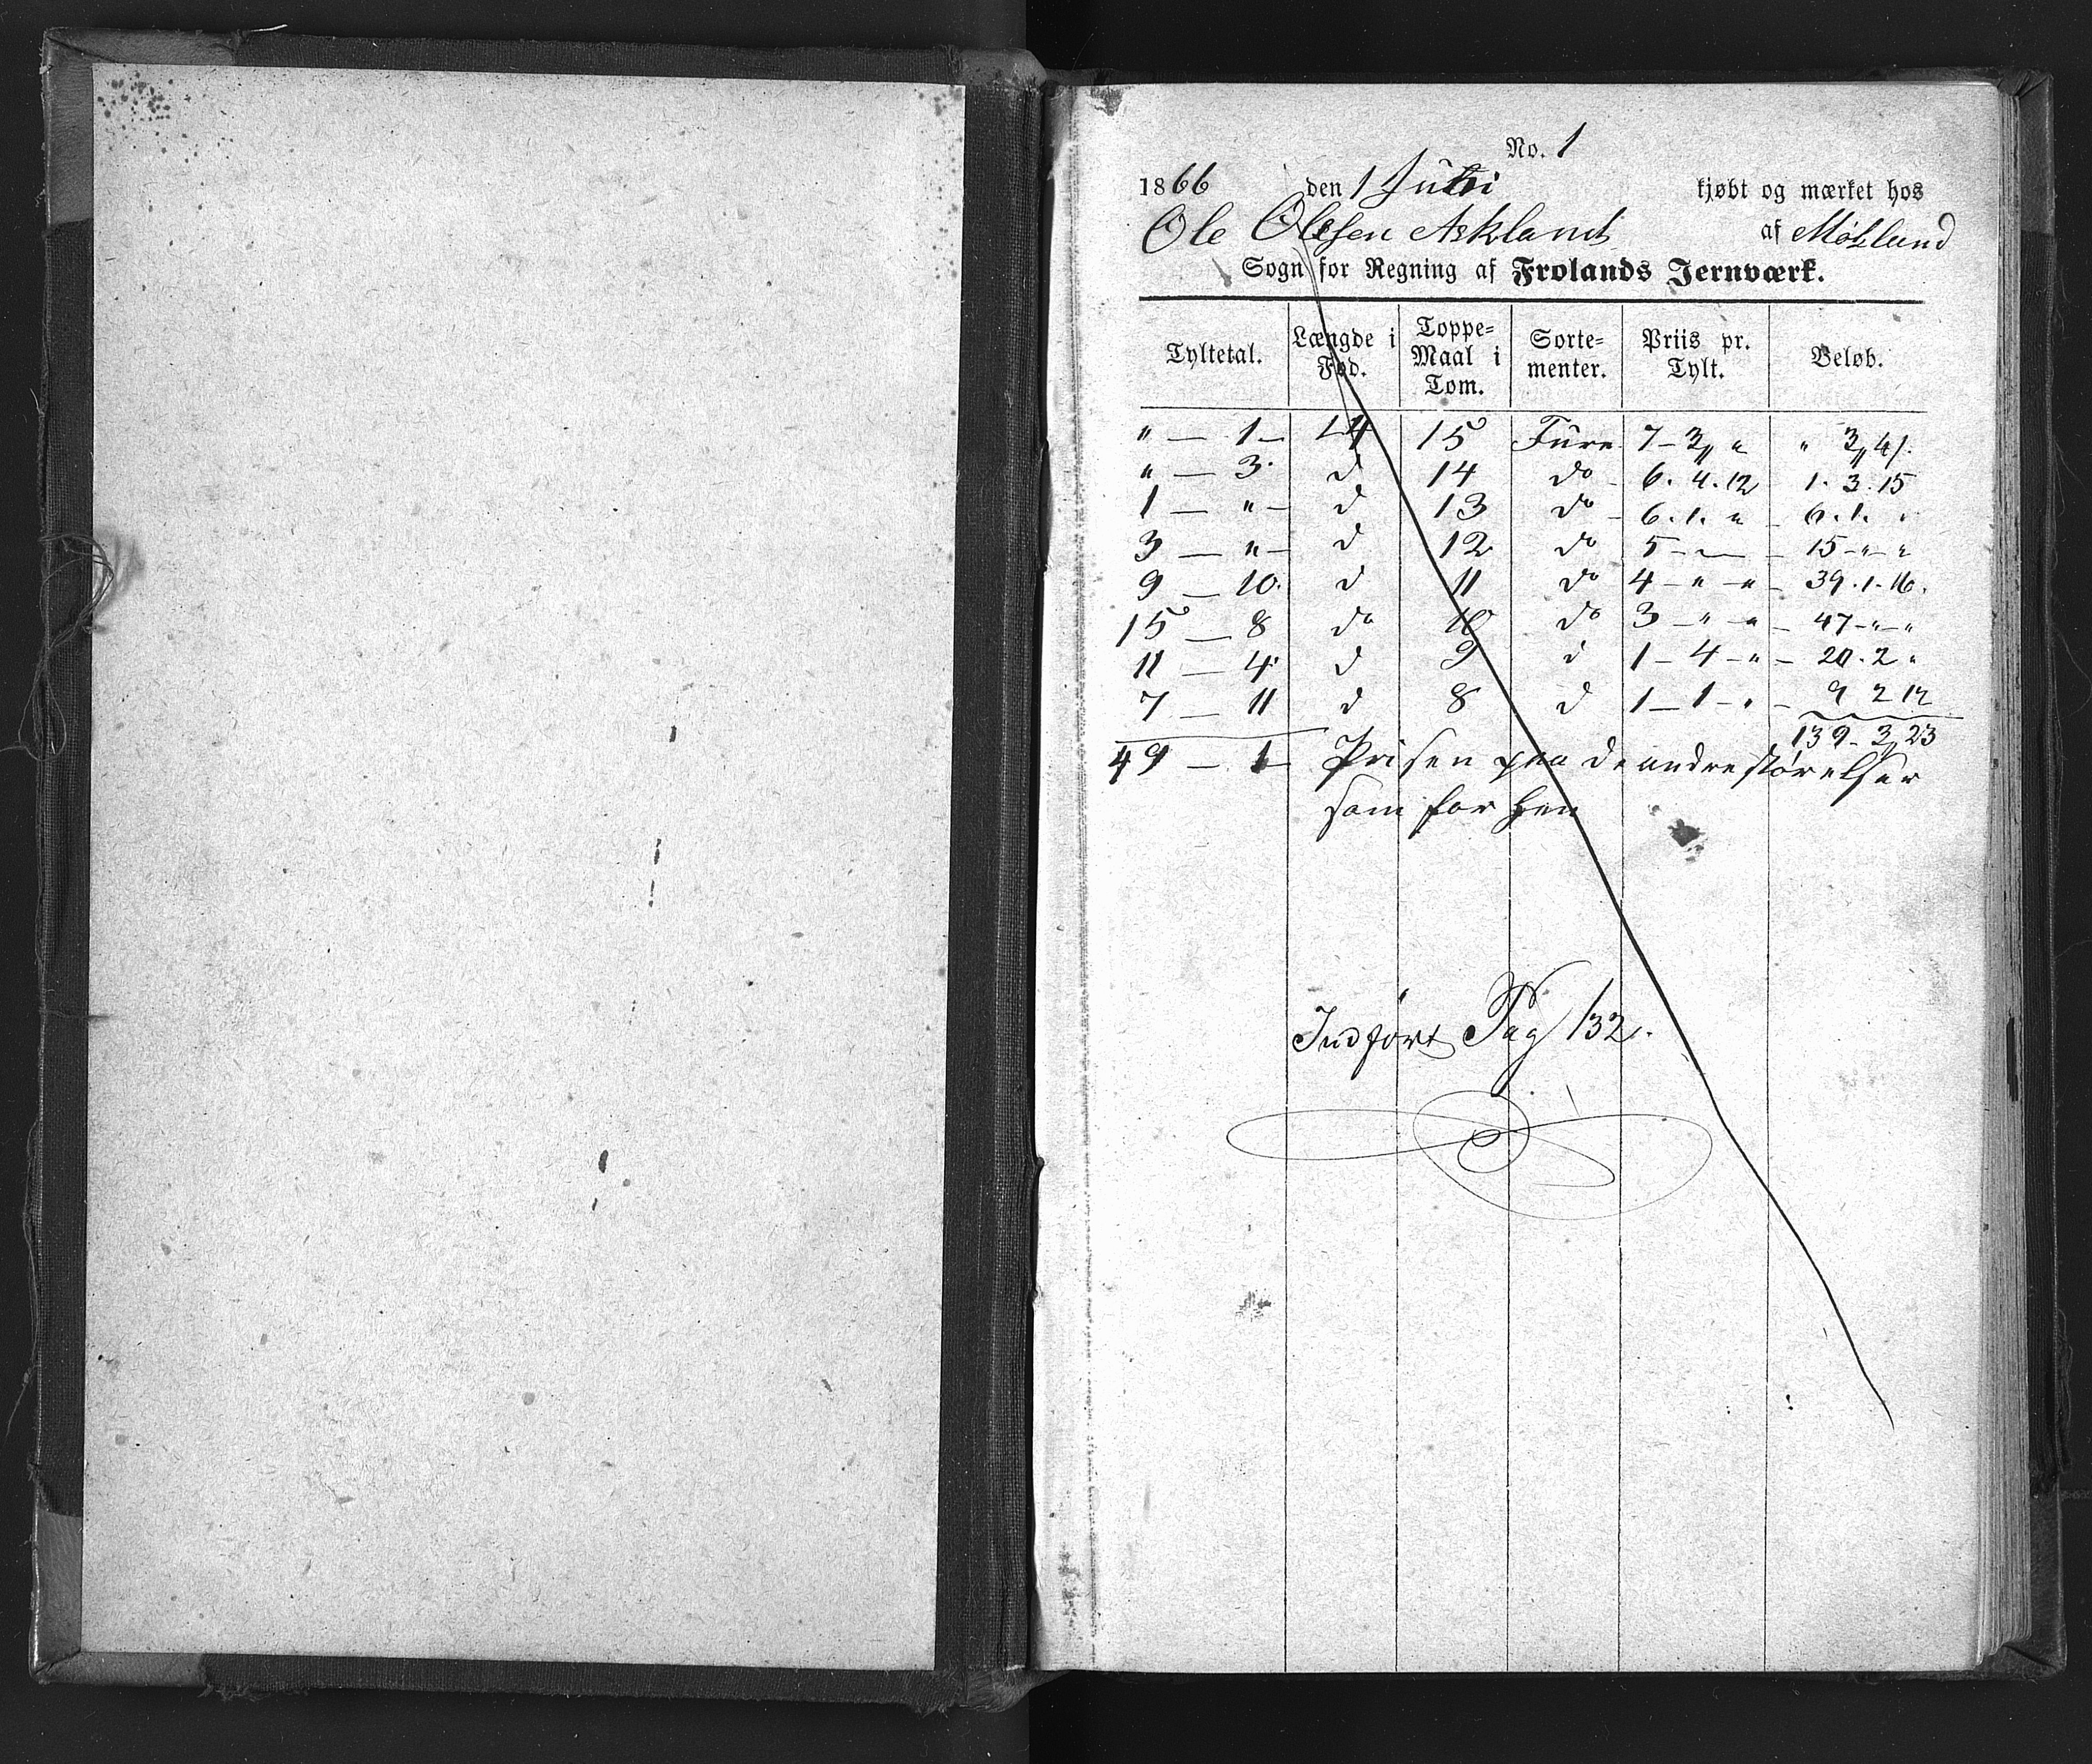 No. 1
1866 den 1 Juli kjøbt og mærket hos
Ole Olesen Askland af Mökland
Sogn for Regning af Frolands Jernværk.
Tyltetal. Længde i Fod. Toppe-Maal i Tom. Sorte-menter. Priis pr. Tylt. Beløb.
" — 1 — 14 15 Furu 7 - 3 „ " " 3 „ 4 /.
" — 3. d 14 do 6. 4. 12 1. 3. 15
1 — " — d 13 do 6. 1. " 6. 1. "
3 — " — d 12 do 5 - — 15 - " - "
9 — 10. d 11 do 4 - " - " 39. 1. 16.
15 — 8 do 10 do 3 - " - " 47 - " - "
11 — 4. d 9 d 1 - 4 - " 20. 2 "
7 — 11 d 8 d 1 - 1 - " 9 2 12
139 - 3 „ 23
49 — 1 — Prisen paa de andre størelser
som for hen
Indført Pag 132.